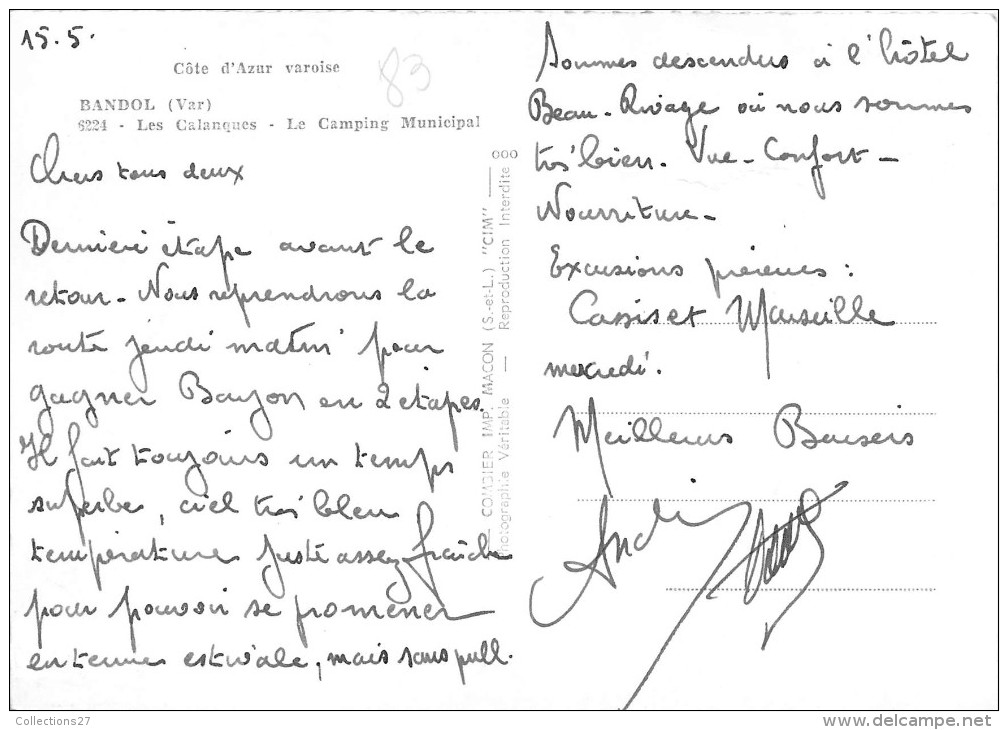 15.5.
Côte d'Azur varoise
83
BANDOL (Var)
6224 - Les Calanques - Le Camping Municipal
Chers tous deux
Dernière étape avant le
retour - Nous reprendrons la
route jeudi matin pour
gagner Bayon en 2 étapes.
Il fait toujours un temps
superbe, ciel très bleu
température juste assez fraîche
pour pouvoir se promener
en tenue estivale, mais sans pull.
COMBIER IMP. MACON (S.-et-L.) "CIM"
Photographie Véritable — Reproduction Interdite
000
Sommes descendus à l'hôtel
Beau-Rivage où nous sommes
très bien. Vue - Confort -
Nourriture -
Excusions prévues :
Cassis et Marseille
mercredi.
Meilleurs Baisers
André
Collections27
delcampe.net